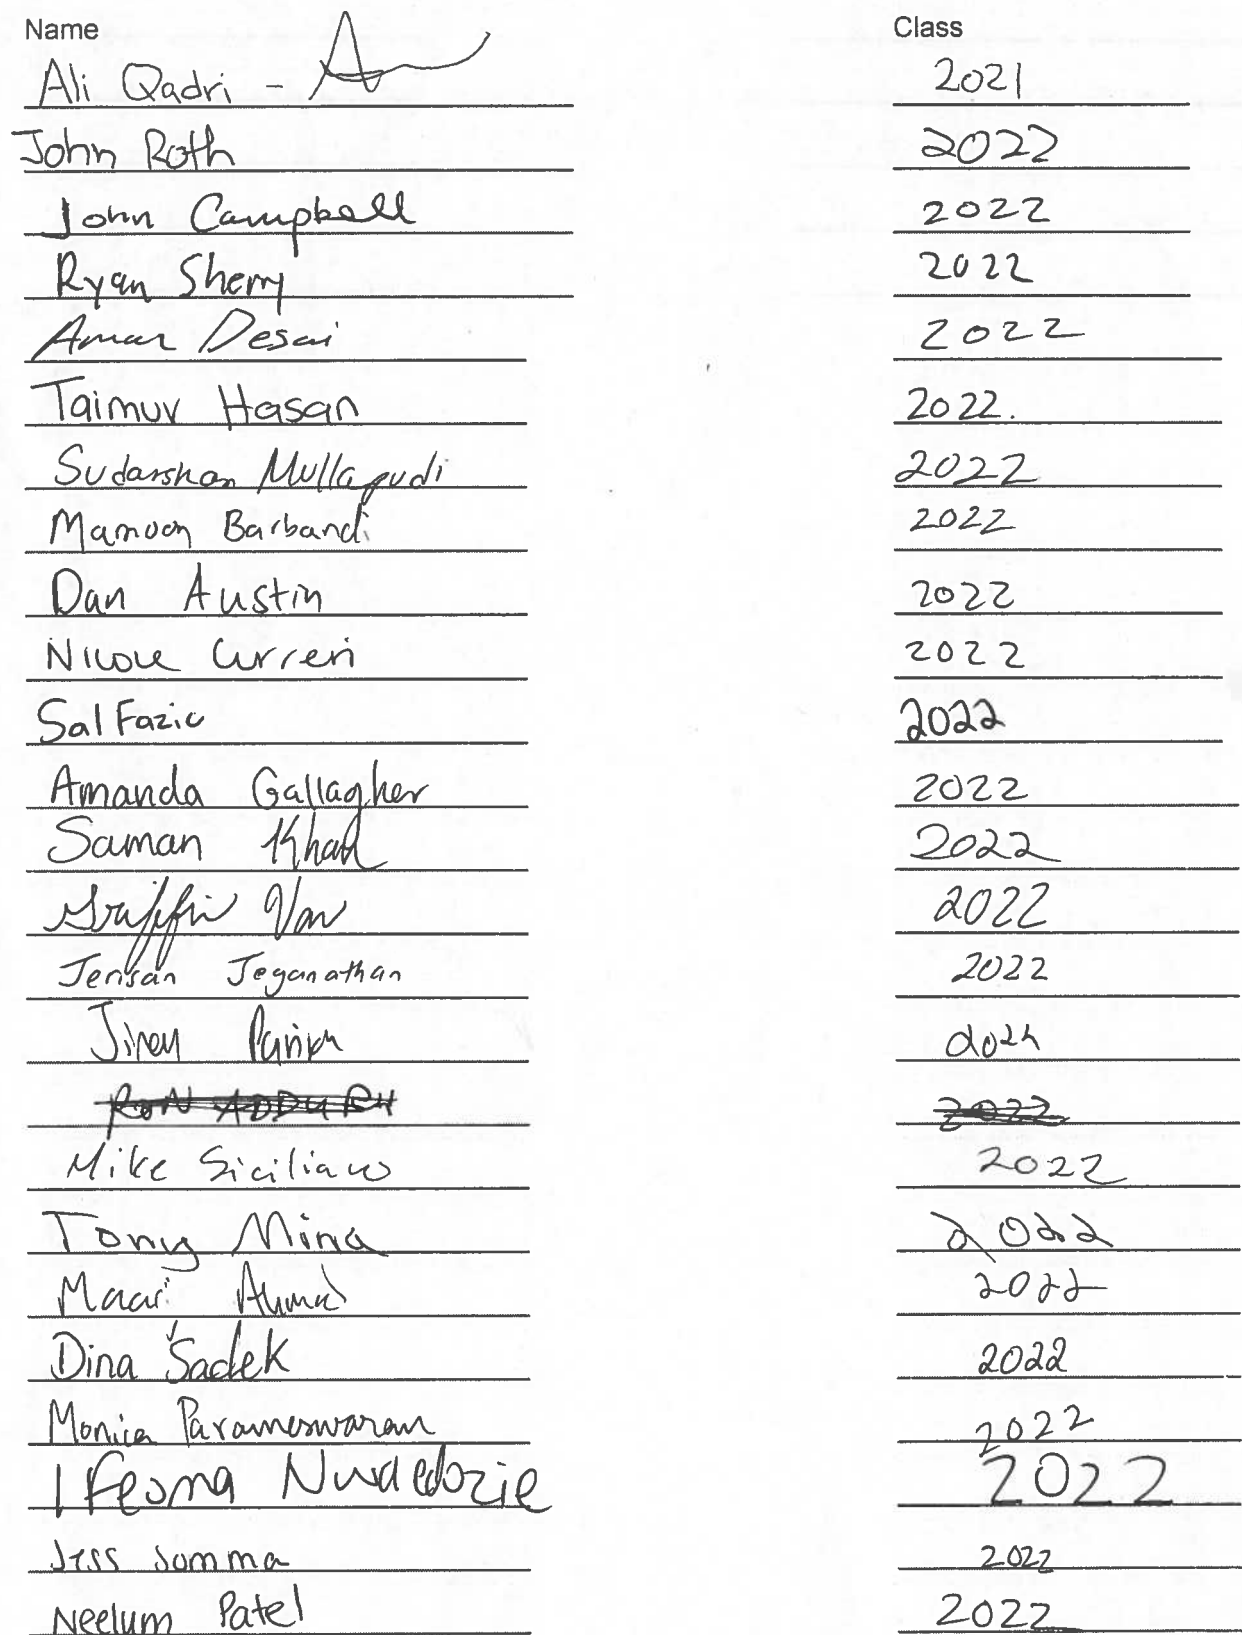 Name Class
Ali Qadri - 2021
John Roth 2022
John Campbell 2022
Ryan Sherry 2022
Amar Desai 2022
Taimur Hasan 2022.
Sudarshan Mullapudi 2022
Mamoon Barbandi 2022
Dan Austin 2022
Nicole Curreri 2022
Sal Fazio 2022
Amanda Gallagher 2022
Saman Khan 2022
Griffin 2022
Jenisan Jeganathan 2022
Parikh 2022
2022
Mike Siciliano 2022
Tony Mina 2022
Ahmad 2022
Dina Sadek 2022
Monica Parameswaran 2022
Ifeoma Nwaedozie 2022
Jess Somma 2022
Neelum Patel 2022